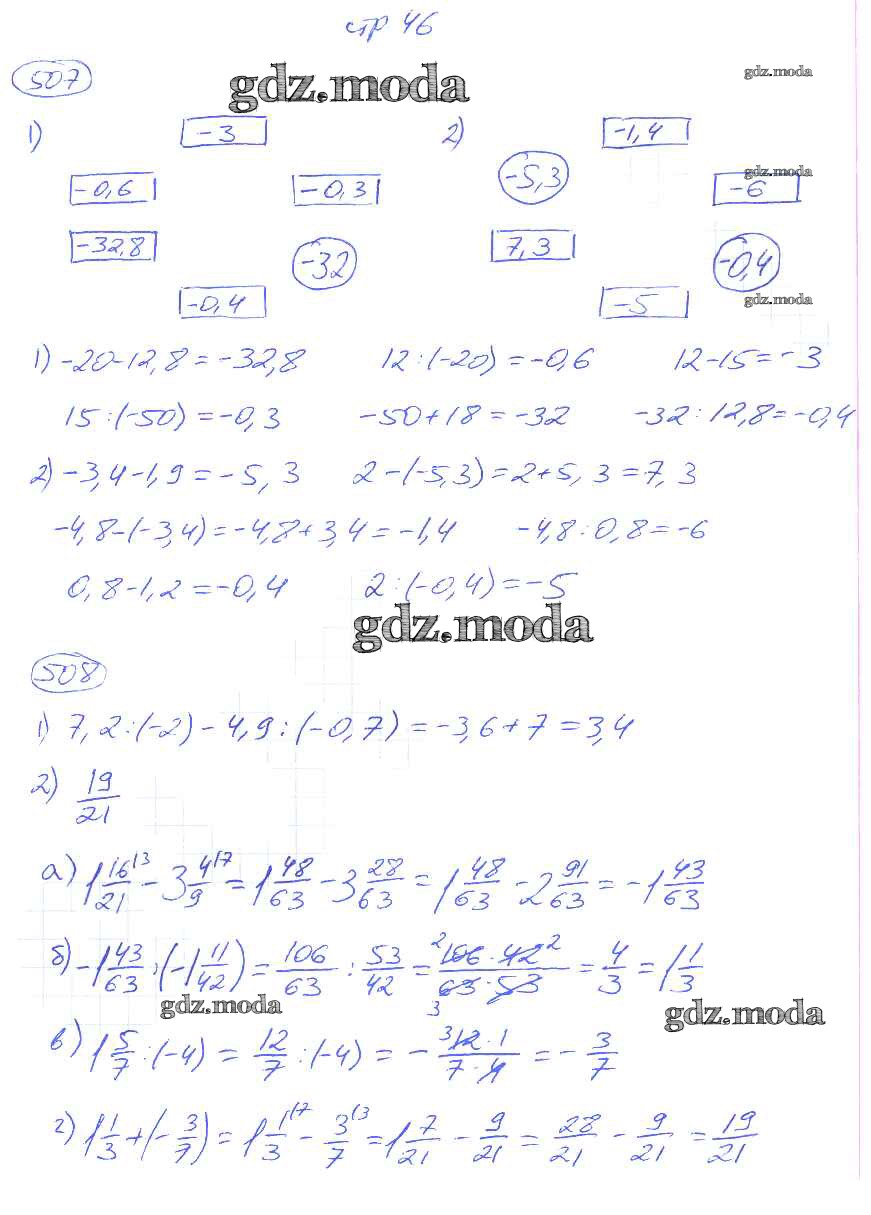 стр 46
507
gdz.moda
gdz.moda
1) -3
2) -1,4
-0,6 -0,3 -5,3 -6
gdz.moda
-32,8 -32 7,3 -0,4
-0,4 -5
gdz.moda
1) -20-12,8=-32,8 12:(-20)=-0,6 12-15=-3
15:(-50)=-0,3 -50+18=-32 -32:12,8=-0,4
2) -3,4-1,9=-5,3 2-(-5,3)=2+5,3=7,3
-4,8-(-3,4)=-4,8+3,4=-1,4 -4,8:0,8=-6
0,8-1,2=-0,4 2:(-0,4)=-5
gdz.moda
508
1) 7,2:(-2)-4,9:(-0,7)=-3,6+7=3,4
2) 19/21
а) 1 16/21 \3 - 3 4/9 \7 = 1 48/63 - 3 28/63 = 1 48/63 - 2 91/63 = -1 43/63
б) -1 43/63 : (-1 11/42) = 106/63 : 53/42 = 2 106·42 2 / 3 63·53 = 4/3 = 1 1/3
gdz.moda
gdz.moda
в) 1 5/7 : (-4) = 12/7 : (-4) = - 3 12·1 / 7·4 = - 3/7
г) 1 1/3 + (- 3/7) = 1 1/3 \7 - 3/7 \3 = 1 7/21 - 9/21 = 28/21 - 9/21 = 19/21